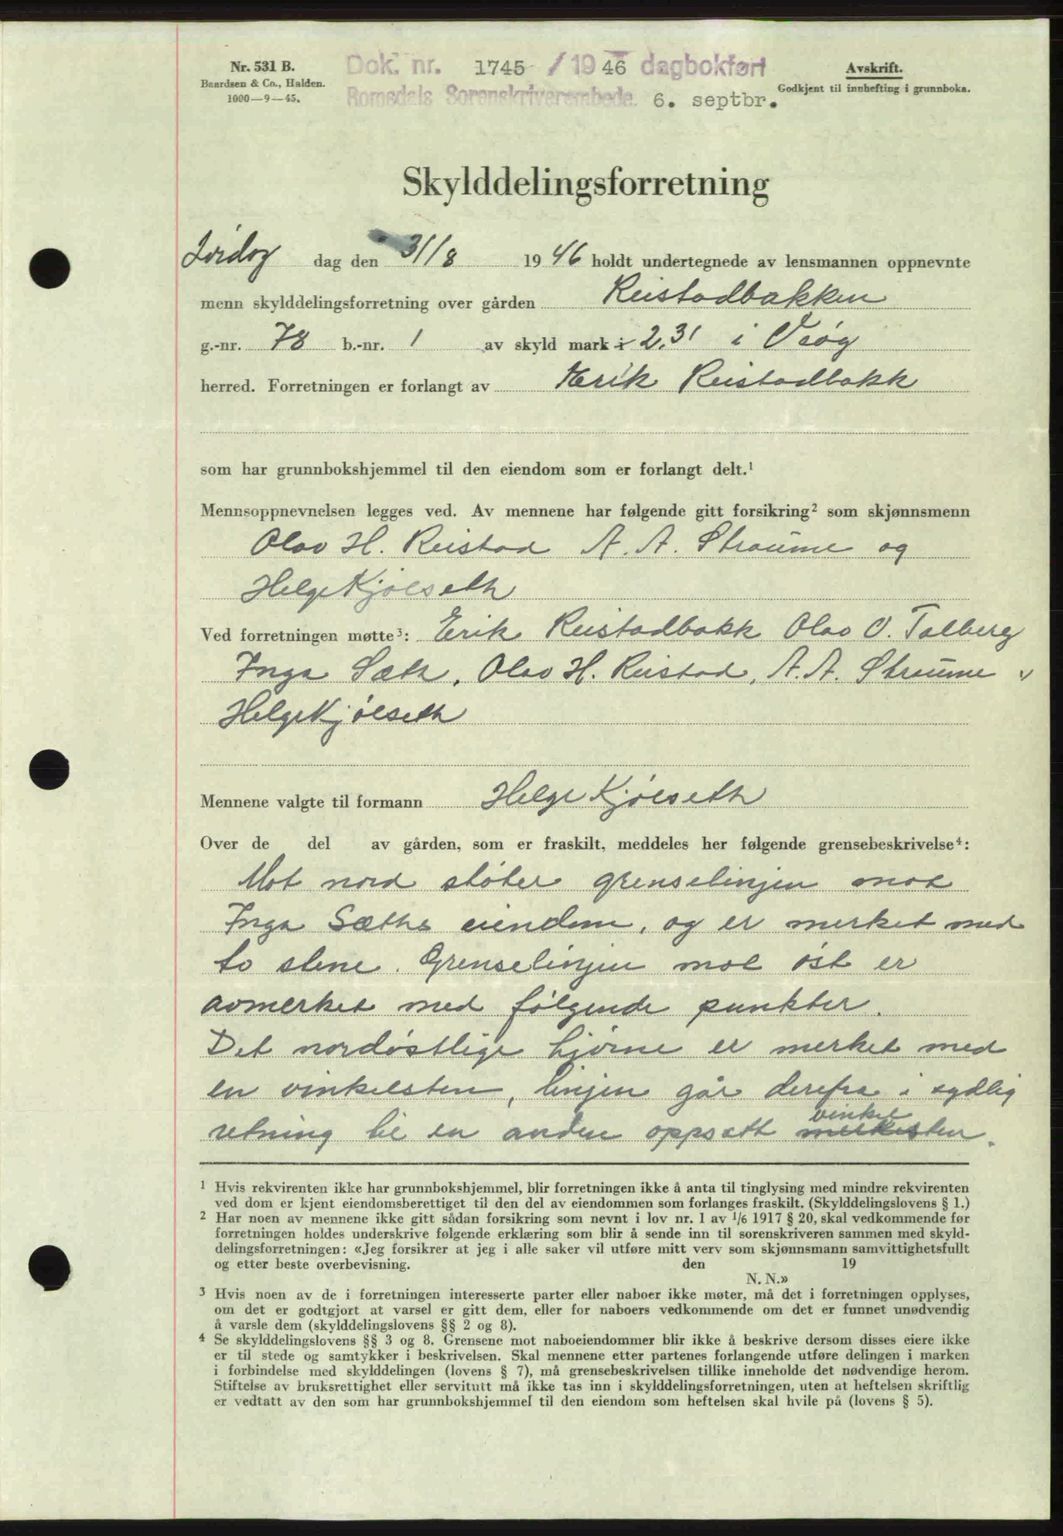 Nr. 531 B.
Baardsen & Co., Halden.
1000—9—45.
Dok. nr. 1745 / 1946 dagbokført
Romsdals Sorenskriverembede. 6. septbr.
Avskrift.
Godkjent til innhefting i grunnboka.
Skylddelingsforretning
Lördag dag den 31/8 1946 holdt undertegnede av lensmannen oppnevnte
menn skylddelingsforretning over gården Reistadbakken
g.-nr. 78 b.-nr. 1 av skyld mark 2,31 i Veøy
herred. Forretningen er forlangt av Erik Reistadbakk
som har grunnbokshjemmel til den eiendom som er forlangt delt.¹
Mennsoppnevnelsen legges ved. Av mennene har følgende gitt forsikring² som skjønnsmenn
Olav H. Reistad A. A. Straume og
Helge Kjölseth
Ved forretningen møtte³: Erik Reistadbakk Olav O. Talberg
Inga Sæth, Olav H. Reistad, A. A. Straume
Helge Kjölseth
Mennene valgte til formann Helge Kjölseth
Over de del av gården, som er fraskilt, meddeles her følgende grensebeskrivelse⁴:
Mot nord støter grenselinjen mot
Inga Sæths eiendom, og er merket med
to stene. Grenselinjen mot öst er
avmerket med fölgende punkter.
Det nordøstlige hjörne er merket med
en vinkelsten, linjen går derefra i sydlig
vinkel
retning til en anden oppsatt merkesten.
¹ Hvis rekvirenten ikke har grunnbokshjemmel, blir forretningen ikke å anta til tinglysing med mindre rekvirenten
ved dom er kjent eiendomsberettiget til den del av eiendommen som forlanges fraskilt. (Skylddelingslovens § 1.)
² Har noen av mennene ikke gitt sådan forsikring som nevnt i lov nr. 1 av 1/6 1917 § 20, skal vedkommende før
forretningen holdes underskrive følgende erklæring som blir å sende inn til sorenskriveren sammen med skyld-
delingsforretningen: «Jeg forsikrer at jeg i alle saker vil utføre mitt verv som skjønnsmann samvittighetsfullt
og etter beste overbevisning. den 19
N. N.»
³ Hvis noen av de i forretningen interesserte parter eller naboer ikke møter, må det i forretningen opplyses,
om det er godtgjort at varsel er gitt dem, eller for naboers vedkommende om det er funnet unødvendig
å varsle dem (skylddelingslovens §§ 2 og 8).
⁴ Se skylddelingslovens §§ 3 og 8. Grensene mot naboeiendommer blir ikke å beskrive dersom disses eiere ikke
er til stede og samtykker i beskrivelsen. Skal mennene etter partenes forlangende utføre delingen i marken
i forbindelse med skylddelingen (lovens § 7), må grensebeskrivelsen tillike inneholde det nødvendige herom.
Stiftelse av bruksrettighet eller servitutt må ikke tas inn i skylddelingsforretningen, uten at heftelsen skriftlig
er vedtatt av den som har grunnbokshjemmel til den eiendom som heftelsen skal hvile på (lovens § 5).